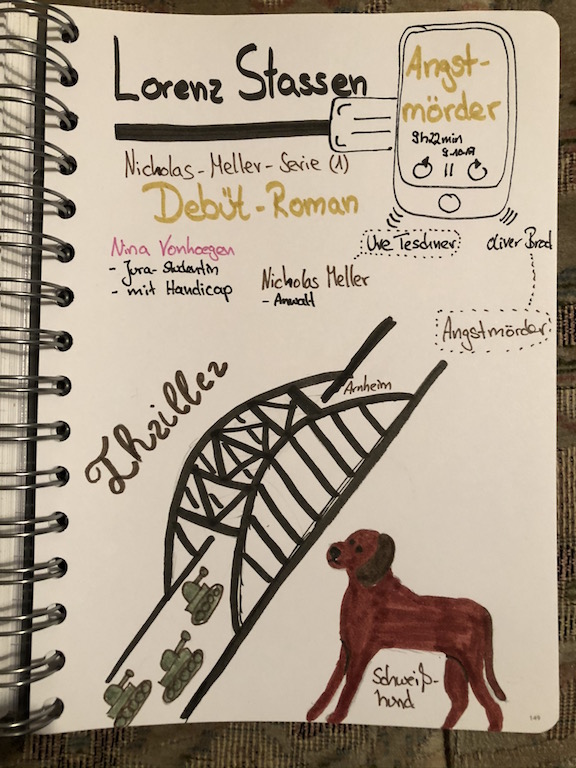 Lorenz Stassen
Angst-
mörder
9h22min
9.10.19
Nicholas-Meller-Serie (1)
Debüt-Roman
Nina Vonhoegen
- Jura-Studentin
- mit Handicap
Nicholas Meller
- Anwalt
Uve Teschner
Oliver Brod
Angstmörder
Thriller
Arnheim
Schweiß-
hund